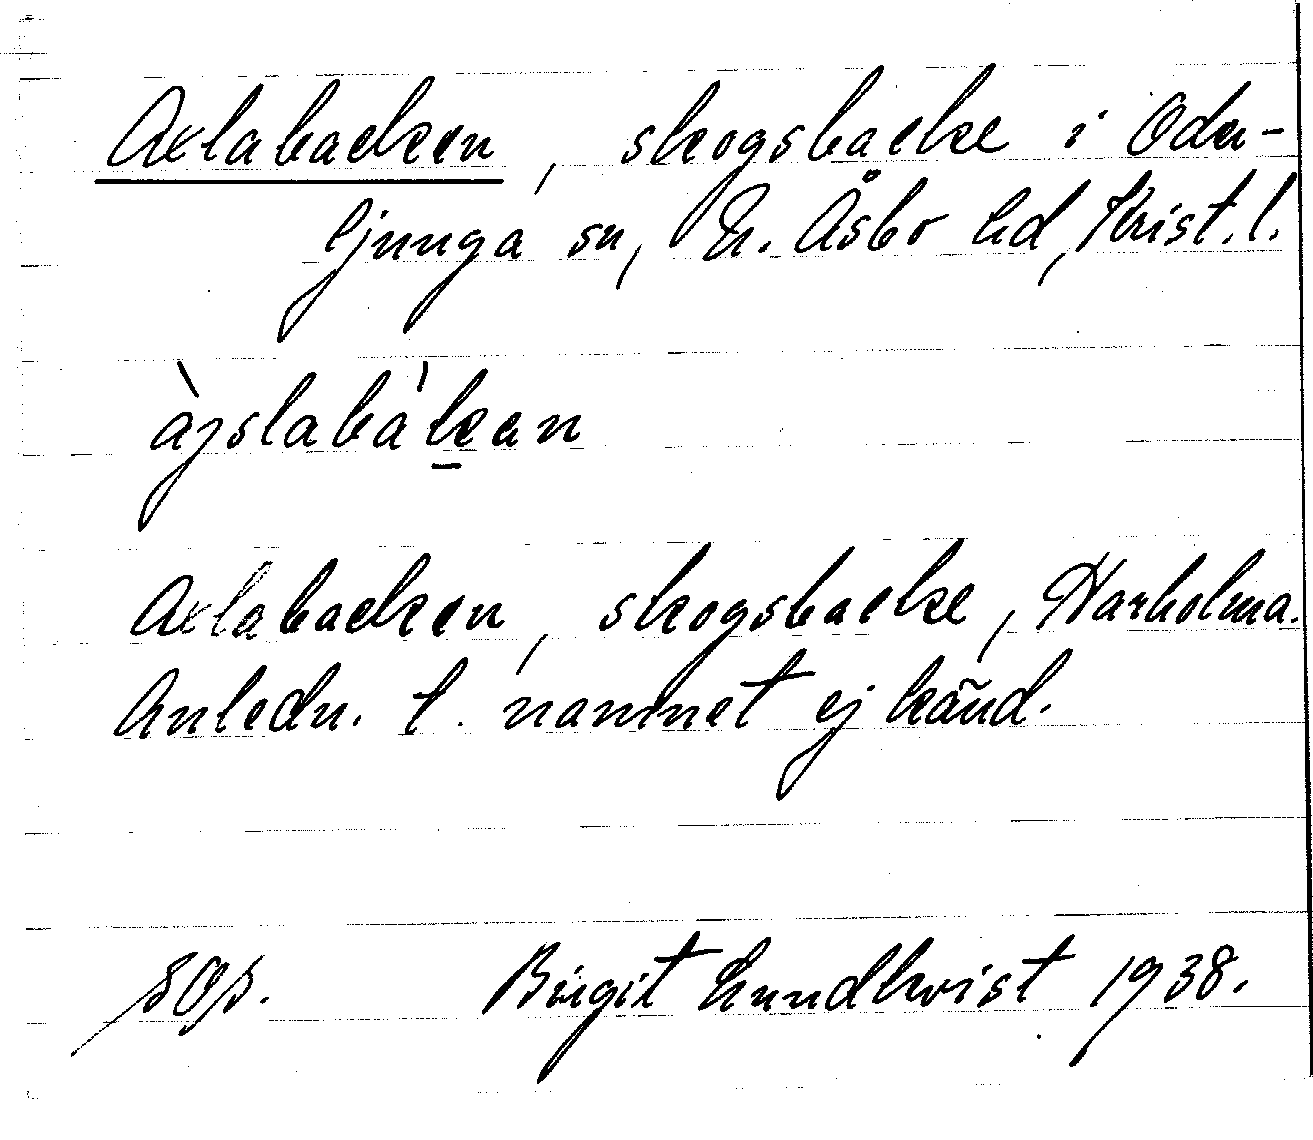 Axlabacken, skogsbacke i Oder-
ljunga sn, N. Åsbo hd, Krist. l.
àjslabàkan
Axlabacken, skogsbacke, Harholma.
Anledn. t. namnet ej känd.
Birgit Lundkvist 1938.